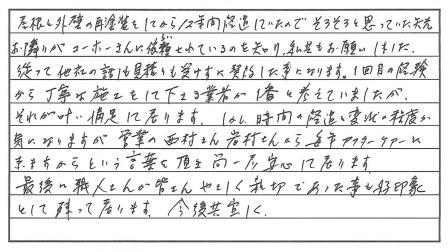 屋根と外壁の再塗装をしてから12年間経過していたのでそろそろと思っていた矢先
お隣りがユーホーさんに依頼されているのを知り、私共もお願いしました。
従って他社の話も見積りも受けずに契約した事になります。1回目の経験
から丁寧な施工をして下さる業者が1番と考えていましたが、
それが叶い満足して居ります。しかし時間の経過と変状の程度が
気になりますが営業の西村さん岩村さんから毎年アフターケアーに
来ますからという言葉を頂き尚一層安心して居ります。
最後に職人さんが皆さんやさしく親切であった事も好印象
として残って居ります。今後共宜しく。